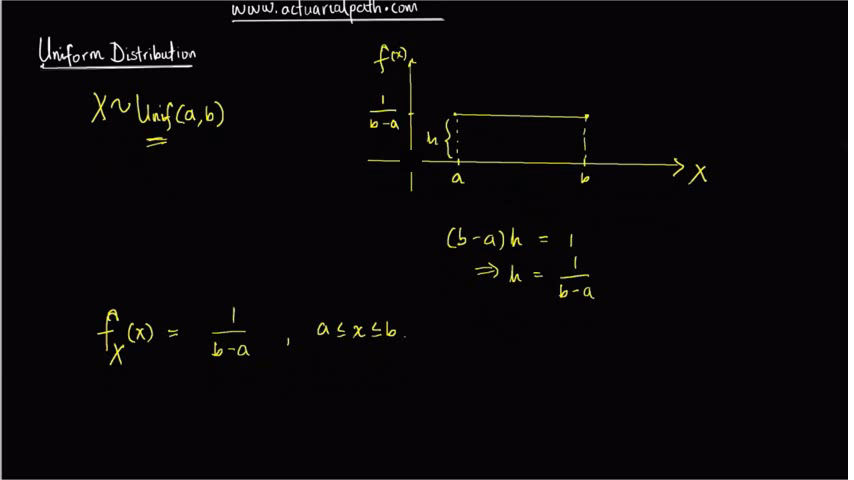 www.actuarialpath.com
Uniform Distribution
X ~ Unif(a,b)
f(x)
1/(b-a)
h
a
b
X
(b-a)h = 1
⇒ h = 1/(b-a)
f_X(x) = 1/(b-a) , a ≤ x ≤ b.